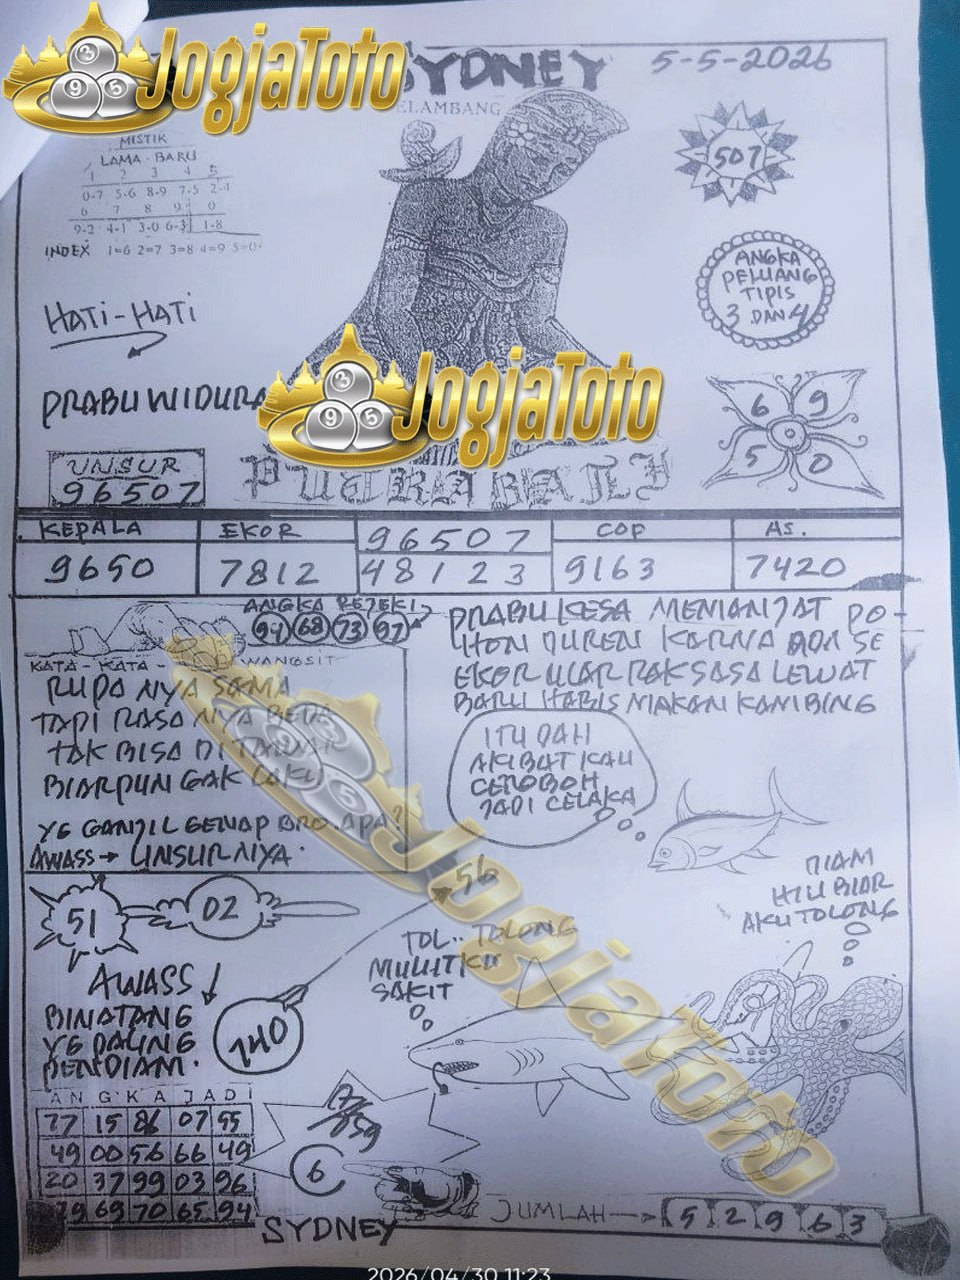 JogjaToto
SYDNEY
5-5-2026
ELAMBANG
MISTIK
LAMA - BARU
1 2 3 4 5
0-7 5-6 8-9 7-5 2-4
6 7 8 9 0
9-2 4-1 3-0 6-3 1-8
INDEX 1=6 2=7 3=8 4=9 5=0
507
ANGKA
PELUANG
TIPIS
3 DAN 4
HATI-HATI
PRABU WIDURA
JogjaToto
6 9
5 0
UNSUR
96507
PUTRA BALI
KEPALA EKOR 96507 COP AS.
9650 7812 48123 9163 7420
ANGKA REJEKI
94 68 73 97
KATA - KATA - WANGSIT
RUPA NYA SAMA
TAPI RASA NYA BEDA
TAK BISA DI TAWAR
BIARPUN GAK LAKU
YG GANJIL GENAP BRO.APA?
AWASS → UNSURNYA.
PRABU KESA MEMANJAT PO-
HON DUREN KARNA ADA SE
EKOR ULAR RAKSASA LEWAT
BARU HABIS MAKAN KAMBING
ITU DAH
AKIBAT KAU
CEROBOH
JADI CELAKA
JogjaToto
51 02
56
DIAM
HIU BIAR
AKU TOLONG
TOL.. TOLONG
MULUTKU
SAKIT
AWASS
BINATANG
YG PALING
PENDIAM.
140
ANGKA JADI
77 15 86 07 55
49 00 56 66 49
20 37 99 03 96
79 69 70 65 94
6
SYDNEY
JUMLAH → 5 2 9 6 3
2026/04/30 11:23